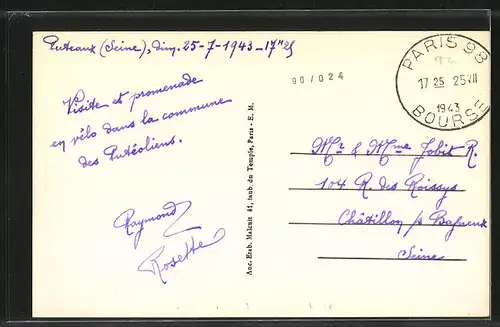 Puteaux (Seine), dim. 25-7-1943 - 17H25
Visite et promenade
en vélo dans la commune
des Putéoliens.
Raymond
Rosette
Anc. Etab. Malcuit 41, faub. du Temple, Paris - E. M.
90/024
PARIS 98
17 25 25 VII
1943
BOURSE
Mr & Mme Jobit R.
104 R. des Roissys
Châtillon s/s Bagneux
Seine